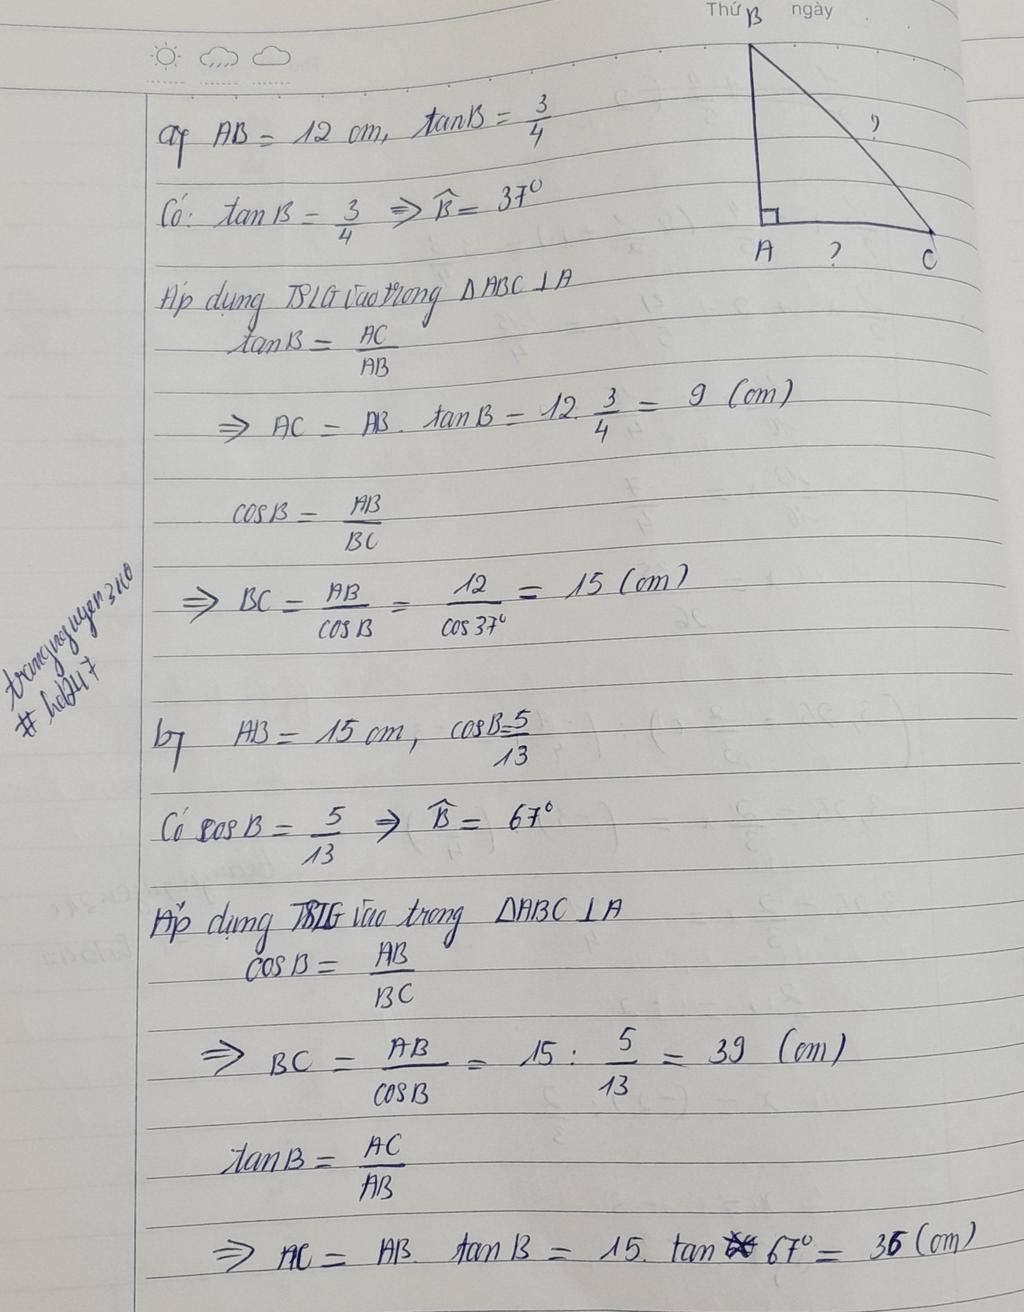 Thứ ngày
B
a, AB = 12 cm, tanB = 3/4
?
Có: tanB = 3/4 ⇒ B̂ = 37°
A ? C
Áp dụng TSLG vào trong ΔABC ⊥ A
tanB = AC/AB
⇒ AC = AB. tanB = 12. 3/4 = 9 (cm)
cosB = AB/BC
⇒ BC = AB/cosB = 12/cos37° = 15 (cm)
trangnguyen3110
# hd247
b, AB = 15 cm, cosB = 5/13
Có cosB = 5/13 ⇒ B̂ = 67°
Áp dụng TSLG vào trong ΔABC ⊥ A
cosB = AB/BC
⇒ BC = AB/cosB = 15 : 5/13 = 39 (cm)
tanB = AC/AB
⇒ AC = AB. tanB = 15. tan 67° = 36 (cm)